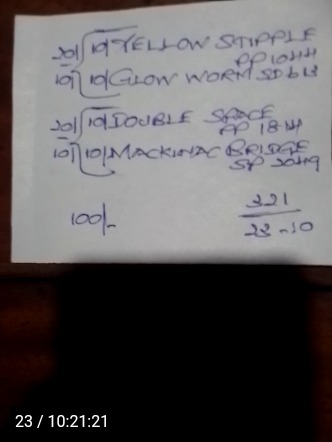 20/ 10/ YELLOW STIPPLE
PP 1044
10/ 10/ GLOW WORM SD 613
20/ 10/ DOUBLE SPACE
PP 1844
10/ 10/ MACKINAC BRIDGE
SP 2049
100/-
221
23-10
23 / 10:21:21